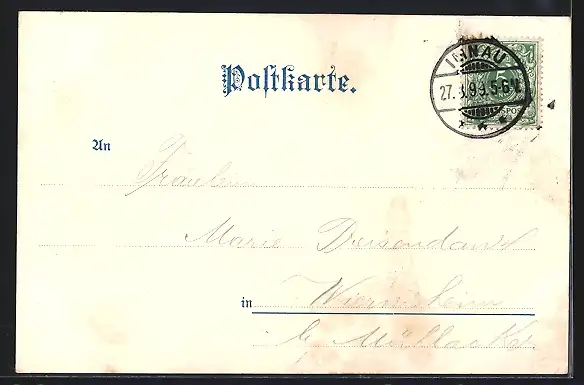 Postkarte.
IMNAU
27.3.99.5-6N.
5
An
Fräulein
Marie
in Wiernsheim
b. Mühlacker